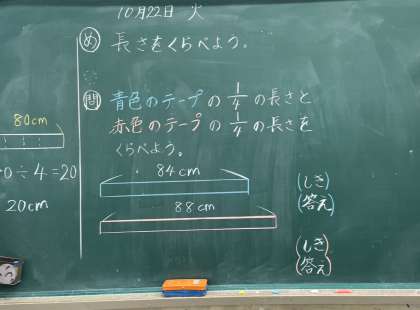 10月22日 火
め 長さをくらべよう。
問 青色のテープの1/4の長さと
赤色のテープの1/4の長さを
くらべよう。
84cm
88cm
(しき)
(答え)
(しき)
(答え)
80cm
0÷4=20
20cm